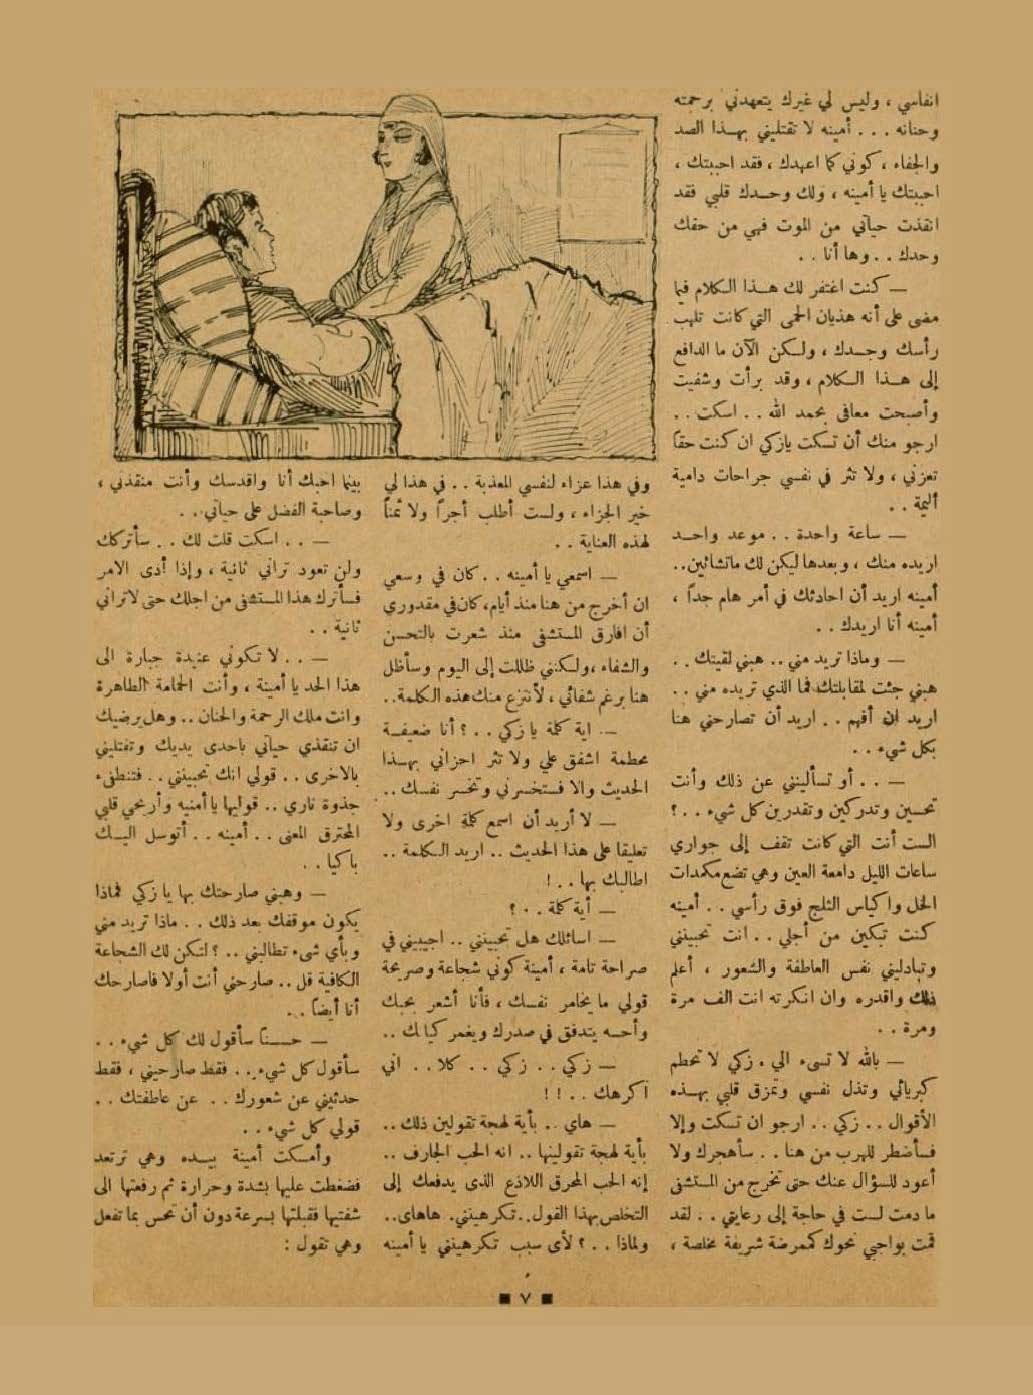 انفاسي ، وليس لي غيرك يتعهدني برحمته
وحنانه . . . أمينه لا تقتليني بهذا الصد
والجفاء ، كوني كما اعهدك ، فقد احببتك ،
احببتك يا أمينه ، ولك وحدك قلبي فقد
انقذت حياتي من الموت فهي من حقك
وحدك . . وها أنا . .
— كنت اغتفر لك هذا الكلام فيما
مضى على أنه هذيان الحمى التي كانت تلهب
رأسك وجسدك ، ولكن الآن ما الدافع
إلى هذا الكلام ، وقد برأت وشفيت
وأصبحت معافى بحمد الله . . اسكت . .
ارجو منك أن تسكت يازكي ان كنت حقاً
تعزني ، ولا تثر في نفسي جراحات دامية
أليمة . .
— ساعة واحدة . . موعد واحد
اريده منك ، وبعدها ليكن لك ماتشائين . .
أمينه اريد أن احادثك في أمر هام جداً ،
أمينه أنا اريدك . .
— وماذا تريد مني . . هبني لقيتك . .
هبني جئت لمقابلتك فما الذي تريده مني . .
اريد ان أفهم . . اريد أن تصارحني هنا
بكل شيء . .
— . . أو تسألينني عن ذلك وأنت
تحسين وتدركين وتقدرين كل شيء . . ؟
الست أنت التي كانت تقف إلى جواري
ساعات الليل دامعة العين وهي تضع مكمدات
الخل واكياس الثلج فوق رأسي . . أمينه
كنت تبكين من أجلي . . انت تحبينني
وتبادليني نفس العاطفة والشعور ، أعلم
ذلك واقدره وان انكرته انت الف مرة
ومرة . .
— بالله لا تسىء الي . زكي لا تحطم
كبريائي وتذل نفسي وتمزق قلبي بهذه
الأقوال . . زكي . . ارجو ان تسكت وإلا
فسأضطر للهرب من هنا . . سأهجرك ولا
أعود للسؤال عنك حتى تخرج من المستشفى
ما دمت لست في حاجة إلى رعايتي . . لقد
قمت بواجبي نحوك كممرضة شريفة مخلصة ،
وفي هذا عزاء لنفسي المعذبة . . في هذا لي
خير الجزاء ، ولست أطلب أجراً ولا ثمناً
لهذه العناية . .
— اسمعي يا أمينه . . كان في وسعي
ان أخرج من هنا منذ أيام، كان في مقدوري
أن افارق المستشفى منذ شعرت بالتحسن
والشفاء ، ولكنني ظللت إلى اليوم وسأظل
هنا برغم شفائي ، لأنتزع منك هذه الكلمة . .
— اية كلمة يا زكي . . ؟ أنا ضعيفة
محطمة اشفق علي ولا تثر احزاني بهذا
الحديث والا فستخسرني وتخسر نفسك . .
— لا أريد أن اسمع كلمة اخرى ولا
تعليقا على هذا الحديث . . اريد الكلمة . .
اطالبك بها . . !
— أية كلمة . . ؟
— اسائلك هل تحبينني . . اجيبيني في
صراحة تامة ، أمينة كوني شجاعة وصريحة
قولي ما يخامر نفسك ، فأنا أشعر بحبك
وأحسه يتدفق في صدرك ويغمر كيانك . .
— زكي . . زكي . . كلا . . اني
اكرهك . . ! !
— هاي . . بأية لهجة تقولين ذلك . .
بأية لهجة تقولينها . . انه الحب الجارف . .
إنه الحب المحرق اللاذع الذى يدفعك إلى
التخلص بهذا القول . . تكرهينني . هاهاى . .
ولماذا . . ؟ لأى سبب تكرهينني يا أمينه
بينما احبك أنا واقدسك وأنت منقذتي ،
وصاحبة الفضل على حياتي . .
— . . اسكت قلت لك . . سأتركك
ولن تعود تراني ثانية ، وإذا أدى الامر
فسأترك هذا المستشفى من اجلك حتى لا تراني
ثانية . .
— . . لا تكوني عنيدة جبارة الى
هذا الحد يا أمينة ، وأنت الحمامة الطاهرة
وانت ملك الرحمة والحنان . . وهل يرضيك
ان تنقذي حياتي باحدى يديك وتقتليني
بالاخرى . . قولي انك تحبينني . . فتنطفىء
جذوة ناري . . قوليها يا أمنيه وأريحي قلبي
المحترق المعنى . . أمينه . . أتوسل اليك
باكيا . .
— وهبني صارحتك بها يا زكي فماذا
يكون موقفك بعد ذلك . . ماذا تريد مني
وبأي شىء تطالبني . . ؟ لتكن لك الشجاعة
الكافية قل . . صارحني أنت أولا فاصارحك
أنا أيضاً . .
— حسناً سأقول لك كل شيء . .
سأقول كل شيء . . فقط صارحيني ، فقط
حدثيني عن شعورك . . عن عاطفتك . .
قولي كل شيء . .
وأمسكت أمينة بيده وهي ترتعد
فضغطت عليها بشدة وحرارة ثم رفعتها الى
شفتيها فقبلتها بسرعة دون أن تحس بما تفعل
وهي تقول :
■ ٧ ■